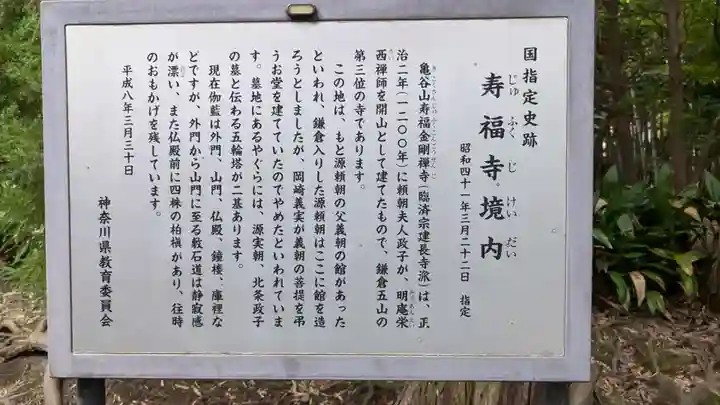 国指定史跡
寿福寺境内
じゅふくじけいだい
昭和四十一年三月二十二日 指定
亀谷山寿福金剛禅寺(臨済宗建長寺派)は、正
治二年(一二〇〇年)に頼朝夫人政子が、明庵栄
西禅師を開山として建てたもので、鎌倉五山の
第三位の寺であります。
この地は、もと源頼朝の父義朝の館があった
といわれ、鎌倉入りした源頼朝はここに館を造
ろうとしましたが、岡崎義実が義朝の菩提を弔
うお堂を建てていたのでやめたといわれていま
す。墓地にあるやぐらには、源実朝、北条政子
の墓と伝わる五輪塔が二基あります。
現在伽藍は外門、山門、仏殿、鐘楼、庫裡な
どですが、外門から山門に至る敷石道は静寂感
が漂い、また仏殿前に四株の柏槇があり、往時
のおもかげを残しています。
平成八年三月三十日
神奈川県教育委員会